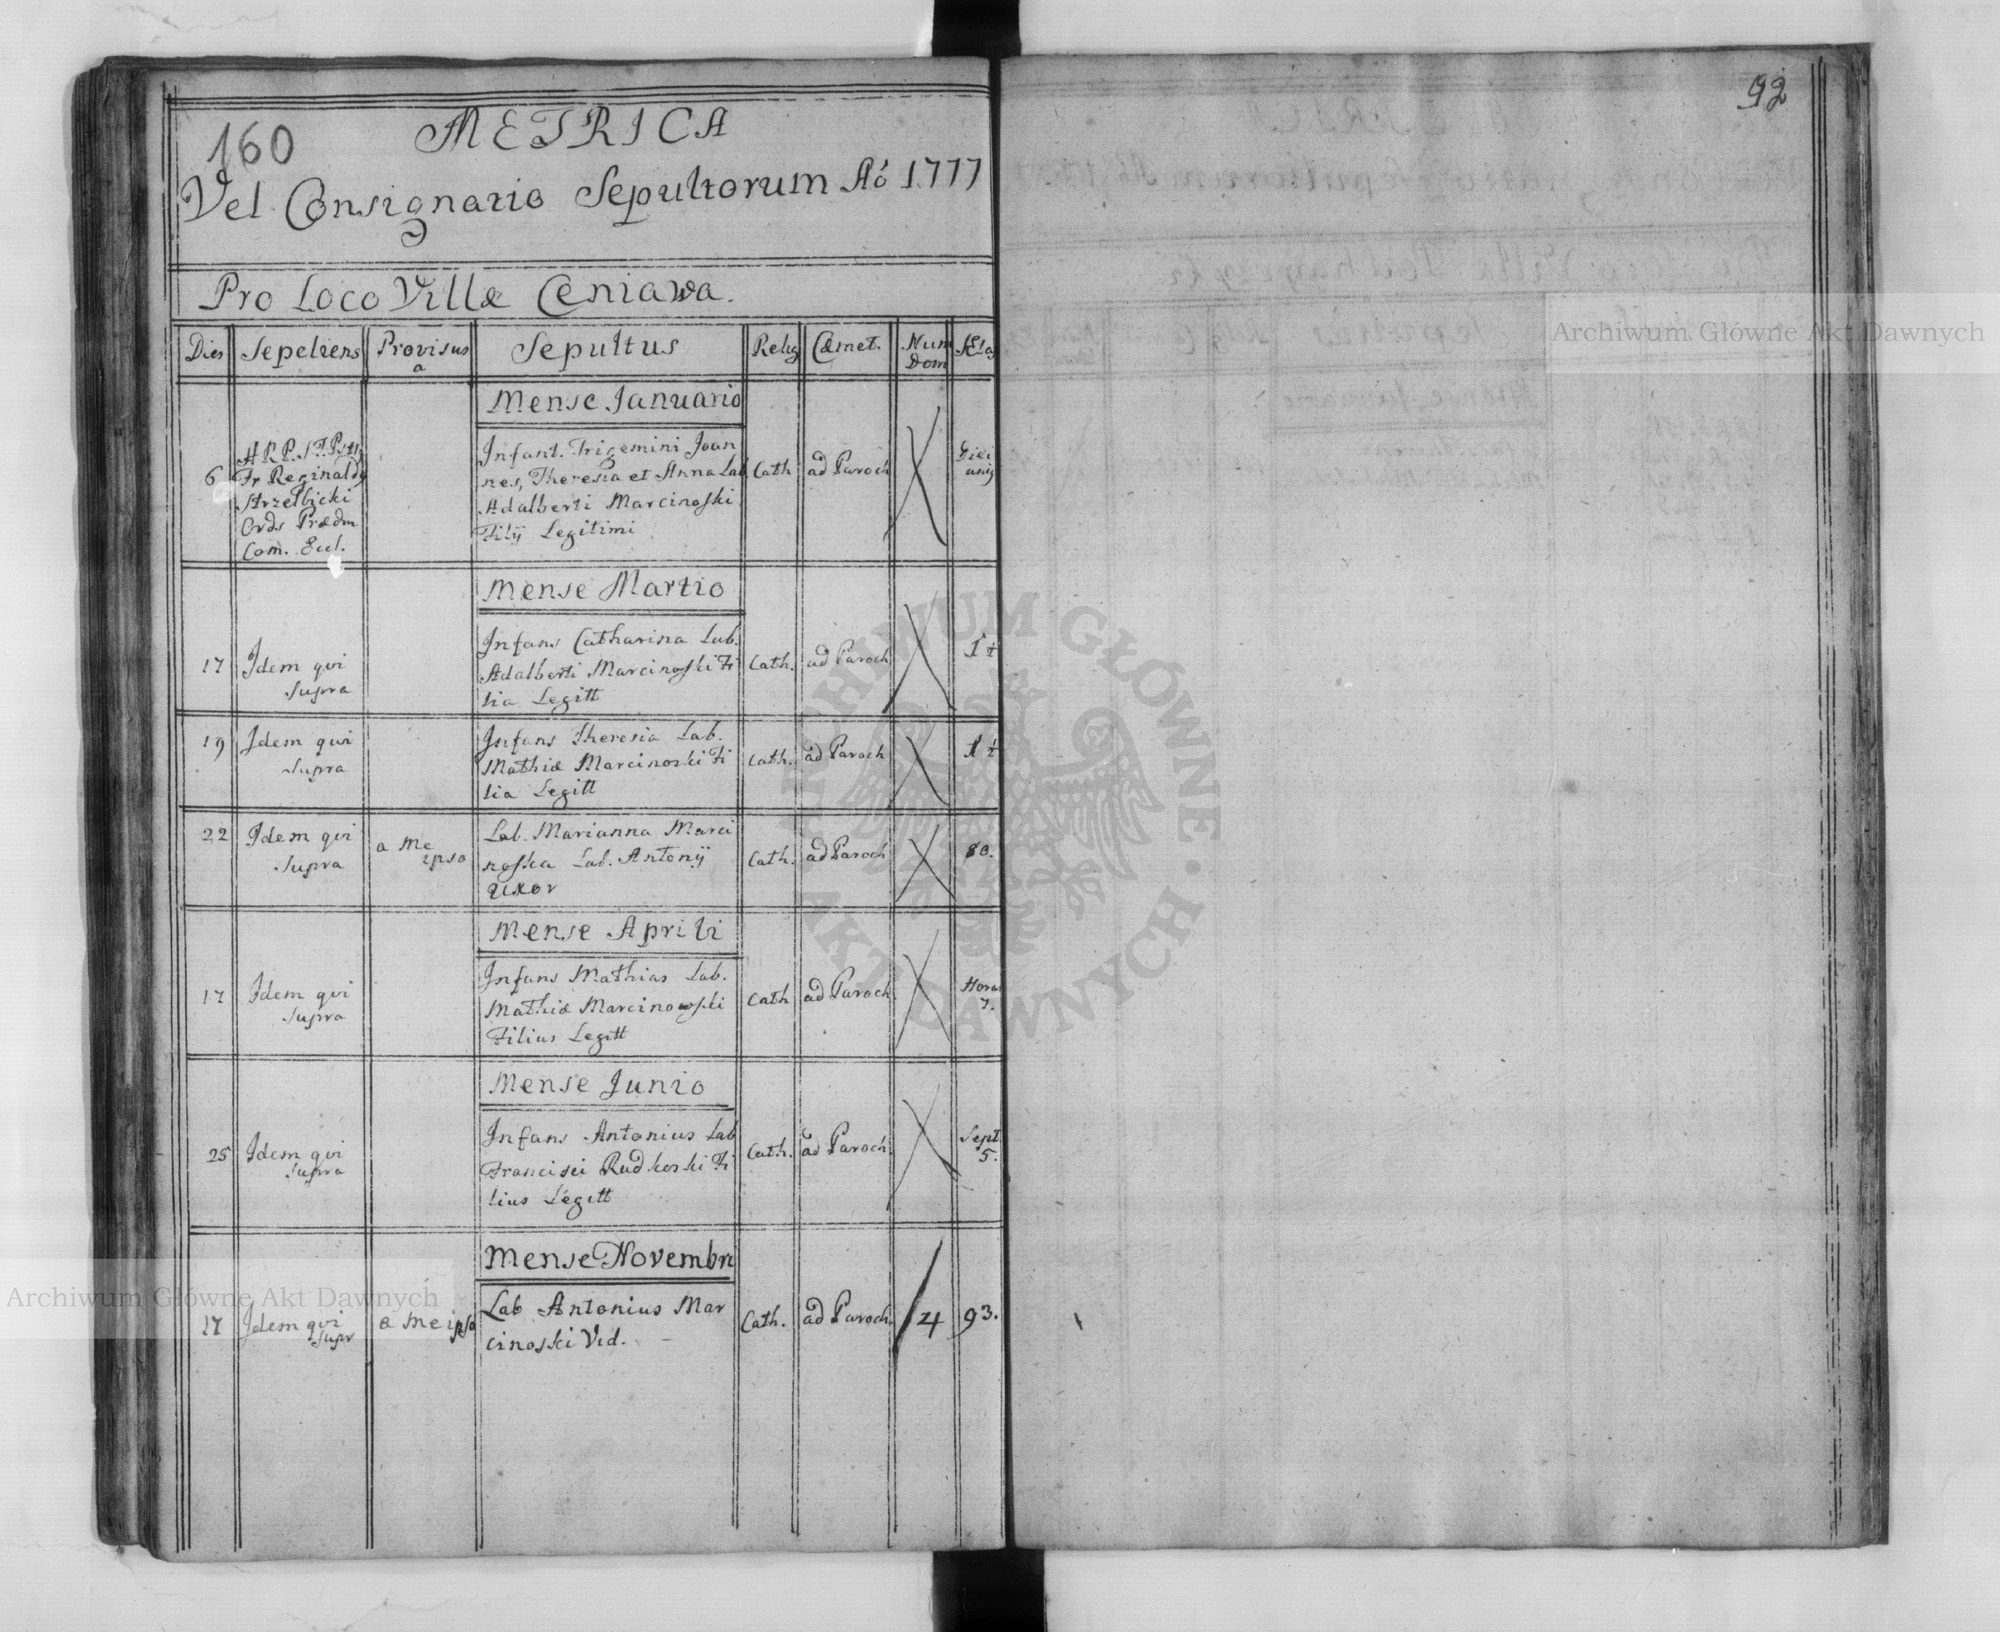 92
160
METRICA
Vel Consignatio Sepultorum Aõ 1777
Pro Loco Villæ Ceniawa.
Dies Sepeliens Provisus a Sepultus Relig Cæmet. Num Dom
Mense Januario
6 A R P. Fr Reginaldy Strzelbicki Ord. Prædm Com. Eccl.
Infant. Trigemini Joan
nes, Theresia et Anna Lab
Adalberti Marcinoski
Filij Legitimi
Cath ad Paroch
Mense Martio
17 Idem qvi supra
Infans Catharina Lab.
Adalberti Marcinoski Fi
lia Legitt
Cath. ad Paroch
19 Idem qvi supra
Infans Theresia Lab.
Mathiæ Marcinoski Fi
lia Legitt
Cath. ad Paroch
22 Idem qvi supra a Me ipso
Lab. Marianna Marci
noska Lab. Antonij
Uxor
Cath. ad Paroch 80.
Mense Aprili
17 Idem qvi supra
Infans Mathias Lab.
Mathiæ Marcinowski
Filius Legitt
Cath ad Paroch Hora 7.
Mense Junio
25 Idem qvi supra
Infans Antonius Lab
Francisci Rudkoski Fi
lius Legitt
Cath. ad Paroch. Sept. 5.
Mense Novembri
17 Idem qvi supr a Me ipso
Lab Antonius Mar
cinoski Vid.
Cath. ad Paroch. 4 93.
Archiwum Główne Akt Dawnych
Archiwum Główne Akt Dawnych
ARCHIWUM GŁÓWNE · AKT DAWNYCH ·